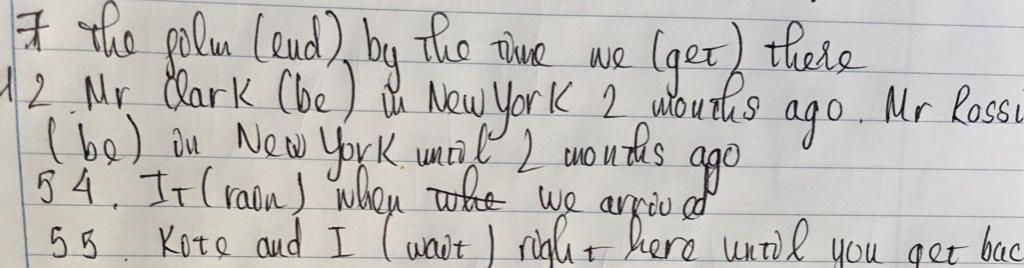 7 The film (end) by the time we (get) there
12. Mr Clark (be) in New York 2 months ago. Mr Rossi
(be) in New York until 2 months ago
54. It (rain) when we arrived
55. Kate and I (wait) right here until you get bac